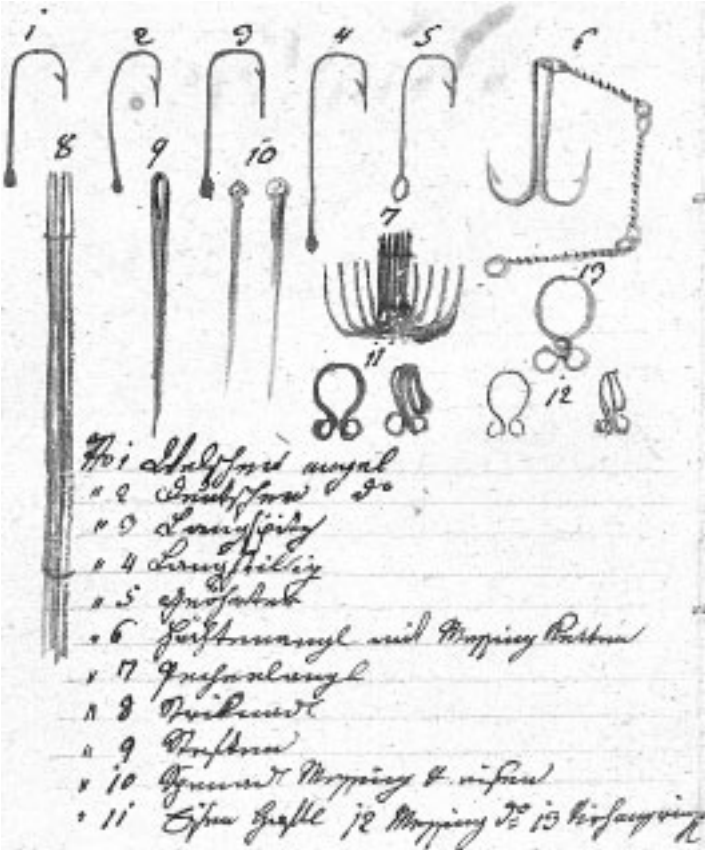 1 2 3 4 5 6
8 9 10
7
13
11
12
No 1 Welschen angel
" 2 Deutschen do
" 3 Langspitz
" 4 Langstilig
" 5 Geöhrter
" 6 mit Messing Ketten
" 7
" 8 Striknadl
" 9
" 10 Spenadl Messing & eisen
" 11 Eisen Haftl 12 Messing do 13 Vorhangring